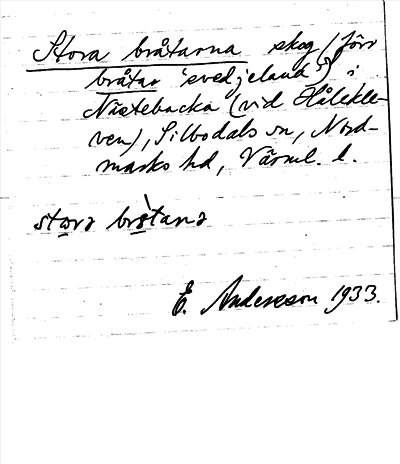 Stora bråtarna skog (förr
bråtar 'svedjeland') i
Nästebacka (vid Hålekle-
ven), Silbodals sn, Nord-
marks hd, Värml. l.
stora bròtana
E. Andersson 1933.